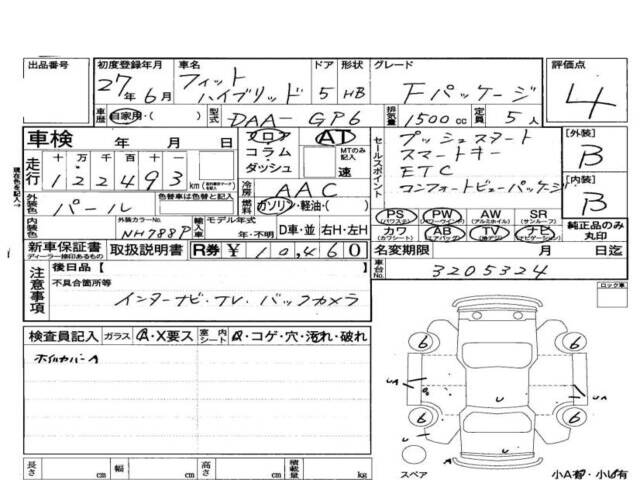 出品番号
初度登録年月
27年6月
車名
フィット
ハイブリッド
ドア
5
形状
HB
グレード
Fパッケージ
評価点
4
車歴
自家用・( )
型式
DAA-GP6
排気量
1500cc
定員
5人
車検 年 月 日
フロア
コラム
ダッシュ
AT
MTのみ記入
速
セールスポイント
プッシュスタート
スマートキー
ETC
コンフォートビューパッケージ
[外装]
B
[内装]
B
走行
十万千百十一
122493km
冷房
AAC
燃料
ガソリン・軽油・( )
外装色
パール
色替車は色替と記入
現在色を記入→
PS
(パワステ)
PW
(パワーウインド)
AW
(アルミホイル)
SR
(サンルーフ)
カワ
(カワシート)
AB
(エアバッグ)
TV
ナビ
(ナビゲーション)
純正品のみ
丸印
内装色
外装カラーNo.
NH788P
輸入車
モデル年式
年・不明
D車・並
右H・左H
新車保証書
ディーラー捺印あるもの
取扱説明書
R券
¥10,460
名変期限 月 日迄
車台No.
3205324
注意事項
後日品【 】
不具合箇所等
インターナビ・TV・バックカメラ
ロック車
検査員記入
ガラス
A・X要ス
室内シート
・コゲ・穴・汚れ・破れ
ホイルカバーA
6
6
6
6
UA
UA
U
U
A
スペア
小A有・小U有
長さ cm
幅 cm
高さ cm
積載量 kg